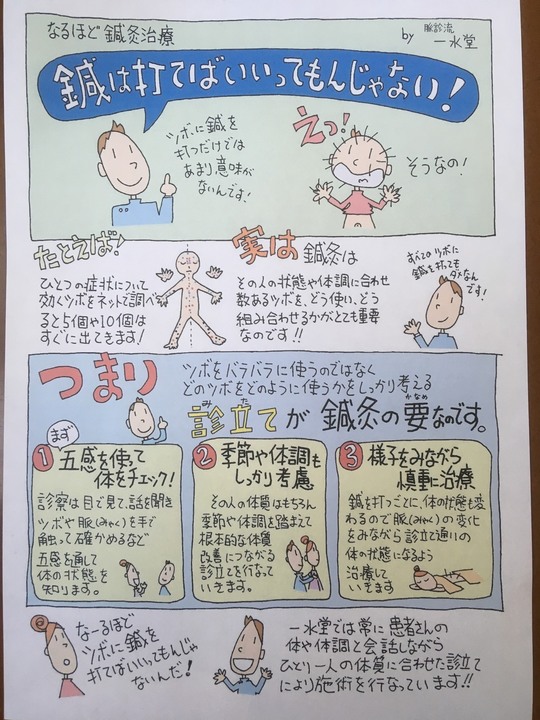 なるほど鍼灸治療
by 脈診流 一水堂
鍼は打てばいいってもんじゃない!
ツボに鍼を
打つだけでは
あまり意味が
ないんです!
えっ!
そうなの!
たとえば♪
ひとつの症状について
効くツボをネットで調べ
ると5個や10個は
すぐに出てきます!
実は鍼灸は
その人の状態や体調に合わせ
数あるツボを、どう使い、どう
組み合わせるかがとても重要
なのです!!
すべてのツボに
鍼を打っても
ダメなん
です!
つまり
ツボをバラバラに使うのではなく
どのツボをどのように使うかをしっかり考える
診立てが鍼灸の要なのです。
み た
かなめ
まず
1 五感を使って
体をチェック!
診察は目で見て、話を聞き
ツボや脈(みゃく)を手で
触って確かめるなど
五感を通して
体の状態を
知ります。
2 季節や体調も
しっかり考慮
その人の体質はもちろん
季節や体調を踏まえて
根本的な体質
改善につながる
診立てを行なって
いきます。
3 様子をみながら
慎重に治療
鍼を打つごとに、体の状態も変
わるので脈(みゃく)の変化
をみながら診立て通りの
体の状態になるよう
治療して
いきます
なーるほど
ツボに鍼を
打てばいいってもんじゃ
ないんだ!
一水堂では常に患者さんの
体や体調と会話しながら
ひとり一人の体質に合わせた診立て
により施術を行なっています!!